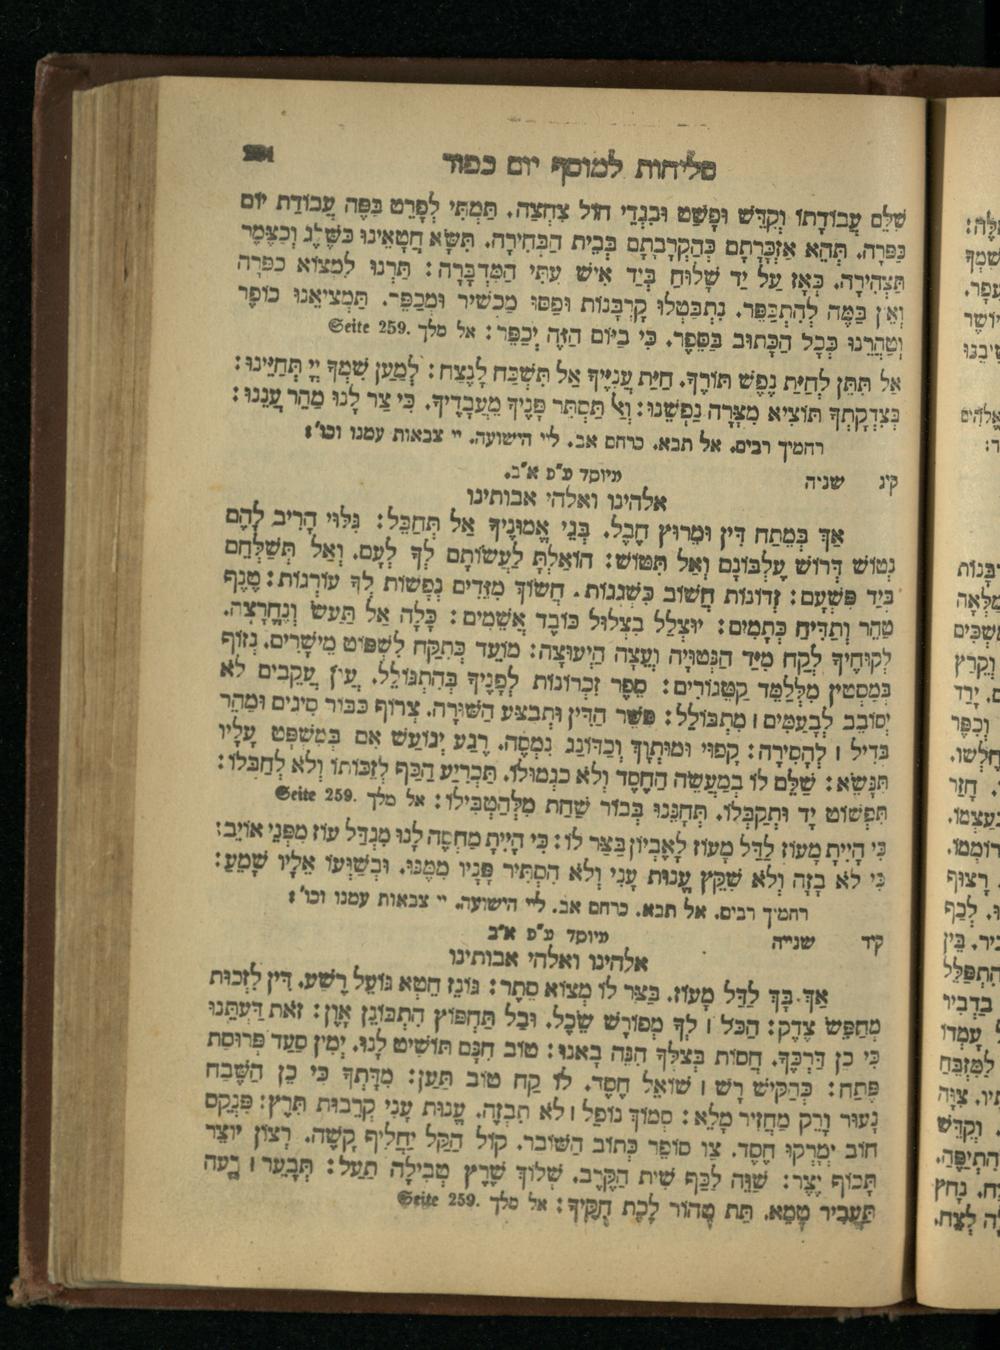 סליחות למוסף יום כפור
שִׁלֵּם עֲבוֹדָתוֹ וְקִדֵּשׁ וּפָשַׁט וּבִגְדֵי חוֹל צִחְצָה. תַּמְתִּי לְפָרֵט בַּפֶּה עֲבוֹדַת יוֹם
כַּפָּרָה. תְּהֵא אַזְכָּרָתָם כְּהַקְרָבָתָם בְּבֵית הַבְּחִירָה. תִּשָּׂא חֲטָאֵינוּ כַּשֶּׁלֶג וְכַצֶּמֶר
תַּצְהִירָה. כְּאָז עַל יַד שָׁלוּחַ בְּיַד אִישׁ עִתִּי הַמִּדְבָּרָה: תַּרְנוּ לִמְצוֹא כַּפָּרָה
וְאֵין בַּמֶּה לְהִתְכַּפֵּר. נִתְבַּטְּלוּ קָרְבָּנוֹת וּפַסּוּ מַכְשִׁיר וּמְכַפֵּר. תַּמְצִיאֵנוּ כוֹפֶר
וְטַהֲרֵנוּ כְּכָל הַכָּתוּב בַּסֵּפֶר. כִּי בַיּוֹם הַזֶּה יְכַפֵּר: אל מלך Seite 259.
אַל תִּתֵּן לְחַיַּת נֶפֶשׁ תּוֹרֶךָ. חַיַּת עֲנִיֶּיךָ אַל תִּשְׁכַּח לָנֶצַח: לְמַעַן שִׁמְךָ יְיָ תְּחַיֵּינוּ:
בְּצִדְקָתְךָ תּוֹצִיא מִצָּרָה נַפְשֵׁנוּ: וְאַל תַּסְתֵּר פָּנֶיךָ מֵעֲבָדֶיךָ. כִּי צַר לָנוּ מַהֵר עֲנֵנוּ:
רחמיך רבים. אל תבא. כרחם אב. ליי הישועה. יי צבאות עמנו וכו':
קיג שניה מיוסד ע"פ א"ב.
אלהינו ואלהי אבותינו
אַךְ בְּמֵתַח דִּין וּמֵרוּץ חֶבֶל. בְּנֵי אֱמוּנֶיךָ אַל תְּחַבֵּל: גִּלּוּי הָרִיב לָהֶם
נְטוֹשׁ דְּרוֹשׁ עֶלְבּוֹנָם וְאַל תִּטּוֹשׁ: הוֹאַלְתָּ לַעֲשׂוֹתָם לְךָ לְעָם. וְאַל תְּשַׁלְּחֵם
בְּיַד פִּשְׁעָם: זְדוֹנוֹת חֲשׁוֹב כִּשְׁגָגוֹת. חֲשׂוֹךְ מִזֵּדִים נְפָשׁוֹת לְךָ עוֹרְגוֹת: טָנֵף
טַהֵר וְתַדִּיחַ כְּתָמִים: יוּצְלַל בִּצְלוּל כּוֹבֶד אֲשֵׁמִים: כָּלָה אַל תַּעַשׂ וְנֶחֱרָצָה.
לְקוּחֶיךָ לְקַח מִיַּד הַנְּטוּיָה וְעֵצָה הַיְעוּצָה: מוֹעֵד כְּתִקַּח לִשְׁפּוֹט מֵישָׁרִים. נְזוֹף
בְּמַסְטִין מִלְּלַמֵּד קַטֵּגוֹרִים: סֵפֶר זִכְרוֹנוֹת לְפָנֶיךָ בְּהִתְגּוֹלֵל. עֲוֹן עֲקֵבִים לֹא
יְסוֹבֵב לִבְעָטִים ו מִתְבּוֹלֵל: פֶּשֶׁר הַדִּין וּתְבַצַּע הַשּׁוּרָה. צְרוֹף כַּבּוֹר סִיגִים וּמַהֵר
בְּדִיל ו לְהָסִירָה: קָפוּי וּמוּתָךְ וְכַדּוֹנַג נִמְסֶה. רֶגַע יְנוֹעַשׁ אִם בְּמִשְׁפָּט עָלָיו
תִּנָּשֵׂא: שַׁלֵּם לוֹ כְמַעֲשֵׂה הַחֶסֶד וְלֹא כִגְמוּלוֹ. תַּכְרִיעַ הַכַּף לִזְכּוּתוֹ וְלֹא לְחַבְּלוֹ:
תִּפְשׁוֹט יָד וּתְקַבְּלוֹ. תְּחָנֵּנוּ בְּבוֹר שַׁחַת מִלְּהַטְבִּילוֹ: אל מלך Seite 259.
כִּי הָיִיתָ מָעוֹז לַדָּל מָעוֹז לָאֶבְיוֹן בַּצַּר לוֹ: כִּי הָיִיתָ מַחְסֶה לָנוּ מִגְדַּל עוֹז מִפְּנֵי אוֹיֵב:
כִּי לֹא בָזָה וְלֹא שִׁקַּץ עֱנוּת עָנִי וְלֹא הִסְתִּיר פָּנָיו מִמֶּנּוּ. וּבְשַׁוְּעוֹ אֵלָיו שָׁמֵעַ:
רחמיך רבים. אל תבא. כרחם אב. ליי הישועה. יי צבאות עמנו וכו':
קיד שנייה מיוסד ע"פ א"ב
אלהינו ואלהי אבותינו
אַךְ בָּךְ לַדָּל מָעוֹז. בַּצַּר לוֹ מְצוֹא סֵתֶר: גּוֹנֵז חֵטְא גּוֹעֵל רֶשַׁע. דִּין לִזְכוּת
מְחַפֵּשׂ צֶדֶק: הַכֹּל ו לְךָ מְפוֹרָשׁ שֵׂכֶל. וּבַל תַּחְפּוֹץ הִתְבּוֹנֵן אָוֶן: זֹאת דַּעְתֵּנוּ
כִּי כֵן דַּרְכֶּךָ. חֲסוֹת בְּצִלְּךָ הִנֵּה בָאנוּ: טוֹב חִנָּם תּוֹשִׁיט לָנוּ. יְמִין סַעַד פְּרוּסַת
פֶּתַח: כְּהַקִּישׁ רָשׁ ו שׁוֹאֵל חֶסֶד. לוֹ קַח טוֹב תַּעַן: מִדָּתְךָ כִּי כֵן הַשֶּׁבַח
נָעוּר וָרֵק מַחֲזִיר מָלֵא: סְמוֹךְ נוֹפֵל ו לֹא תִבְזֶה. עֱנוּת עָנִי קְרֵבוּת תֵּרֶץ: פִּנְקַס
חוֹב יְמָרְקוּ חֶסֶד. צַו סוֹפֵר כְּתוֹב הַשּׁוֹבָר. קוֹל הַקַּל יַחֲלִיף קָשֶׁה. רָצוֹן יוֹצֵר
תָּכוֹף יֵצֶר: שַׁוֵּה לַכַּף שִׁית הַקֶּרֶב. שְׁלוֹךְ שֶׁרֶץ טְבִילָה תַעַל: תְּבָעֵר ו רָעָה
תַּעֲבִיר טָמֵא. תֵּת טָהוֹר לָכֶת חֻקֶּיךָ: אל מלך Seite 259.